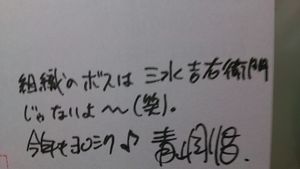 組織のボスは 三水吉右衛門
じゃないよ〜〜(笑)。
今年もヨロシク♪ 青山剛昌